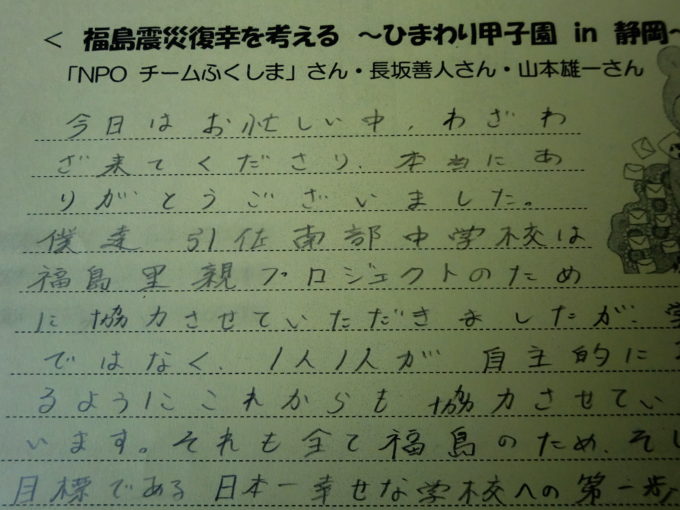 < 福島震災復幸を考える 〜ひまわり甲子園 in 静岡〜
「NPO チームふくしま」さん・長坂善人さん・山本雄一さん
今日はお忙しい中、わざわ
ざ来てくださり、本当にあ
りがとうございました。
僕達 引佐南部中学校は
福島里親プロジェクトのため
に協力させていただきましたが、学
ではなく、1人1人が 自主的に
るようにこれからも 協力させてい
います。それも全て福島のため、そし
目標である 日本一幸せな学校への第一歩